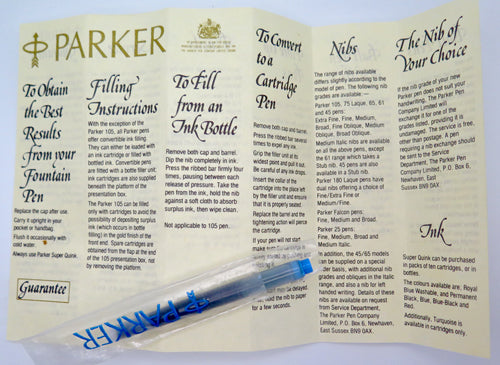 PARKER
To Obtain
the Best
Results
from your
Fountain
Pen
Replace the cap after use.
Carry it upright in your
pocket or handbag.
Flush it occasionally with
cold water.
Always use Parker Super Quink.
Guarantee
Filling
Instructions
With the exception of the
Parker 105, all Parker pens
offer convertible ink filling.
They can either be loaded with
an ink cartridge or filled with
bottled ink. Convertible pens
are fitted with a bottle filler unit;
ink cartridges are also supplied
beneath the platform of the
presentation box.
The Parker 105 can be filled
only with cartridges to avoid the
possibility of depositing surplus
ink (which occurs in bottle
filling) in the gold finish of the
front end. Spare cartridges are
obtained from the flap at the end
of the 105 presentation box, not
by removing the platform.
To Fill
from an
Ink Bottle
Remove both cap and barrel.
Dip the nib completely in ink.
Press the ribbed bar firmly four
times, pausing between each
release of pressure. Take the
pen from the ink, hold the nib
against a soft cloth to absorb
surplus ink, then wipe clean.
Not applicable to 105 pen.
To Convert
to a
Cartridge
Pen
Remove both cap and barrel.
Press the ribbed bar several
times to expel any ink.
Grip the filler unit at its
widest point and pull it out.
Be careful of any ink drops.
Insert the collar of the
cartridge into the place left
by the filler unit and ensure
that it is properly seated.
Replace the barrel and the
tightening action will pierce
the cartridge.
If your pen will not start
may be delayed
lead the nib to paper
for a few seconds.
Nibs
The range of nibs available
differs slightly according to the
model of pen. The following nib
grades are available: —
Parker 105, 75 Laque, 65, 61
and 45 pens:
Extra Fine, Fine, Medium,
Broad, Fine Oblique, Medium
Oblique, Broad Oblique.
Medium Italic nibs are available
on all the above pens, except
the 61 range which takes a
Stub nib. 45 pens are also
available in a Stub nib.
Parker 180 Laque pens have
dual nibs offering a choice of
Fine/Extra Fine or
Medium/Fine.
Parker Falcon pens:
Fine, Medium and Broad.
Parker 25 pens:
Fine, Medium, Broad and
Medium Italic.
In addition, the 45/65 models
can be supplied on a special
order basis, with additional nib
grades and obliques in the Italic
range, and also a nib for left
handed writing. Details of these
nibs are available on request
from Service Department,
The Parker Pen Company
Limited, P.O. Box 6, Newhaven,
East Sussex BN9 0AX.
The Nib of
Your Choice
If the nib grade of your new
Parker pen does not suit your
handwriting, The Parker Pen
Company Limited will
exchange it for one of the
grades listed, providing it is
undamaged. The service is free,
other than postage. A pen
requiring a nib exchange should
be sent to the Service
Department, The Parker Pen
Company Limited, P.O. Box 6,
Newhaven, East
Sussex BN9 0AX.
Ink
Super Quink can be purchased
in packs of ten cartridges, or in
bottles.
The colours available are: Royal
Blue Washable, and Permanent
Black, Blue, Blue-Black and
Red.
Additionally, Turquoise is
available in cartridges only.
PARKER